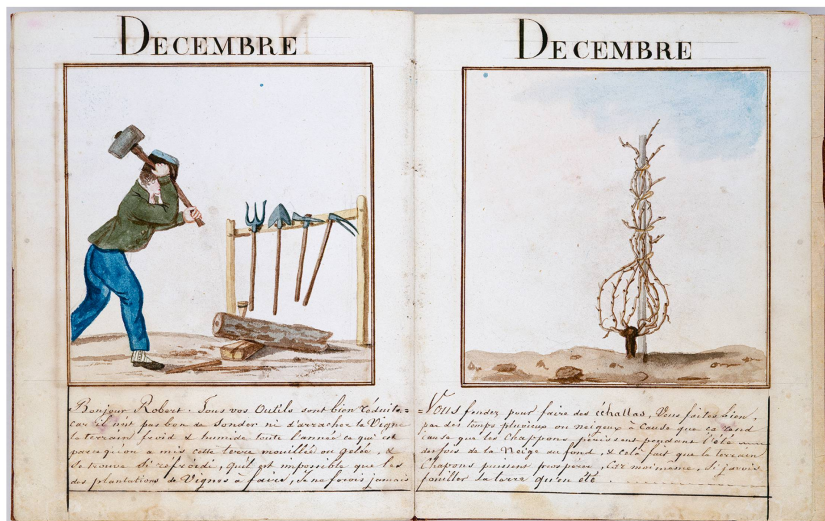 DECEMBRE
Bonjour Robert. Tous vos Outils sont bien réduits =
car il nit pas bon de sonder ni d'arracher la Vigne
le terrain froid & humide toute l'année ce qui est
parcequ'on a mis cette terre mouillée ou gelée, &
se trouve si refroidi, quil est impossible que les
des plantations de Vignes à faire, Je ne ferois jamais
DECEMBRE
= Vous fendez pour faire des échallas, Vous faites bien,
par des temps pluvieux ou neigeux à Cause que ca rend
cause que les Chappons périssent pendant l'été
des fois de la Neige au fond, & cela fait que le terrain
chapons puissent prospérer, Et moi meme, Si javais
fouiller la terre qu'en été